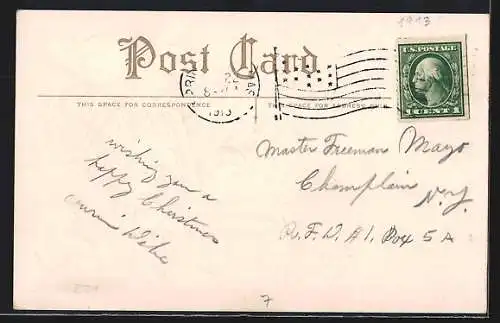 1913
Post Card
U.S. POSTAGE
1 CENT 1
1913
THIS SPACE FOR CORRESPONDENCE
THIS SPACE FOR ADDRESS ONLY
wishing you a
happy Christmas
Master Freeman Mayo
Champlain
N.Y.
R.F.D. #1. Box 5A
7